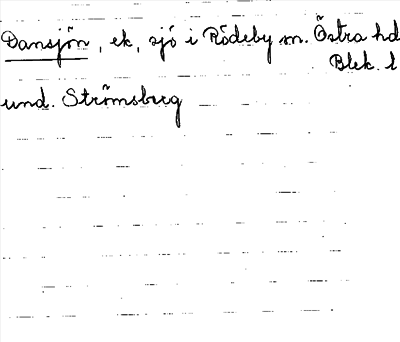 Dansjön, ek, sjö i Rödeby sn. Östra hd
Blek. l
und. Strömsberg